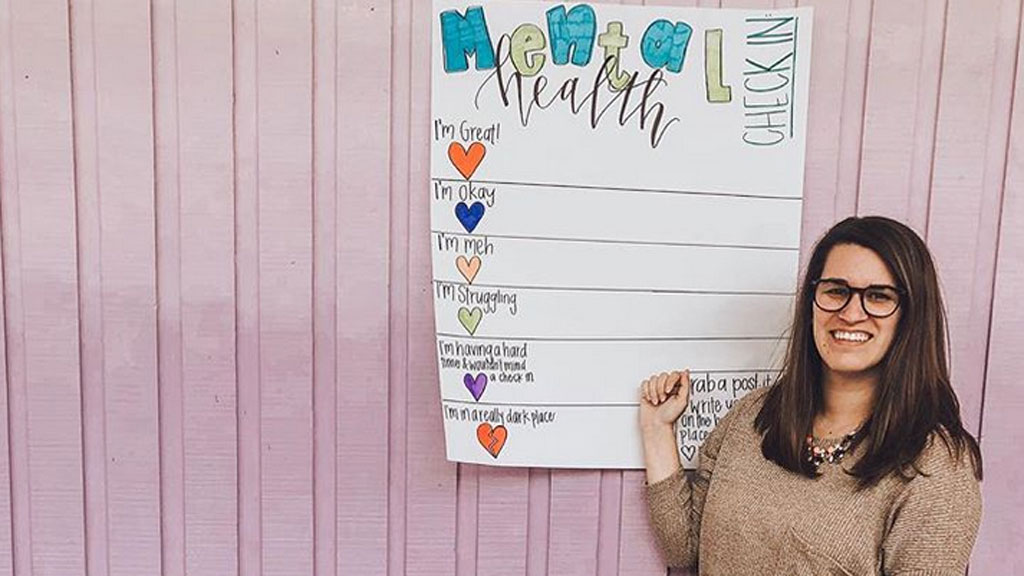 Mental
health
CHECK IN:
I'm Great!
I'm okay
I'm meh
I'm Struggling
I'm having a hard
time & wouldn't mind
a check in
I'm in a really dark place
a post it
write
on the
place